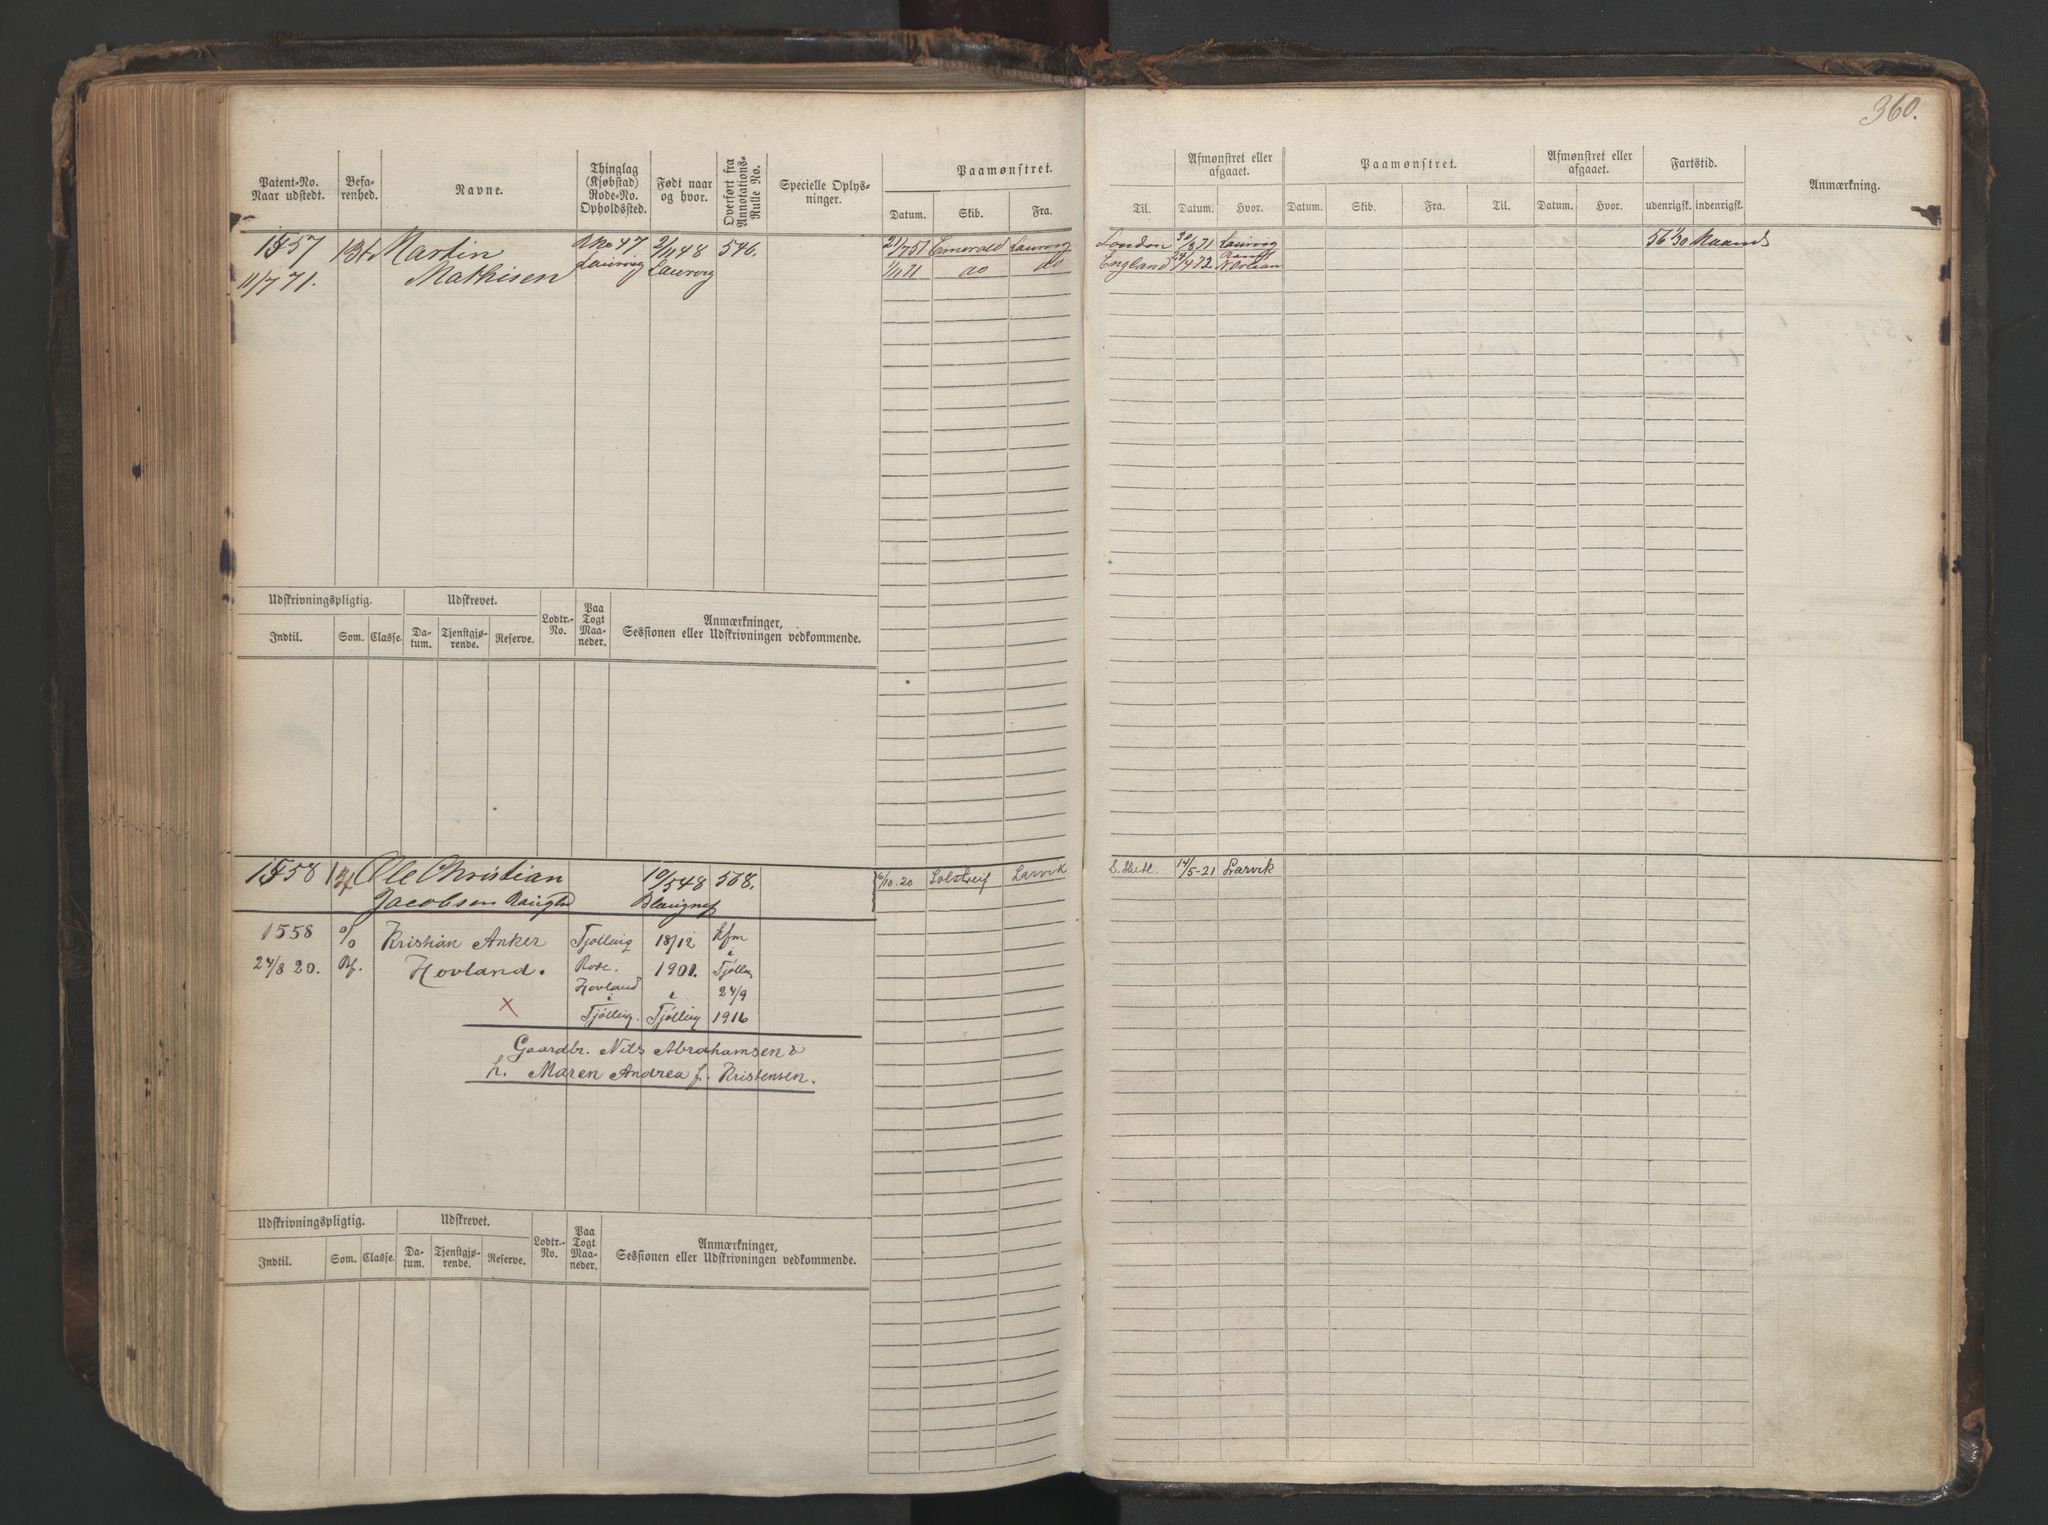 360.
Patent-No. Naar udstedt. Befa-renhed. Navne. Thinglag (Kjøbstad) Rode-No. Opholdssted. Født naar og hvor. Overført fra Annotations-Rulle No. Specielle Oplys-ninger. Paamønstret. Datum. Skib. Fra.
Til. Afmønstret eller afgaaet. Datum. Hvor. Paamønstret. Datum. Skib. Fra. Til. Afmønstret eller afgaaet. Datum. Hvor. Fartstid. udenrigsk. indenrigsk. Anmærkning.
1557 Martin 47 2/11 48 546. Emerald Laurvig London 30/8 71 Laurvig 56 1/30 Maaned
11/7 71. Mathisen Laurvig Laurvig 1/11 71 do do England 24/4 72
Udskrivningspligtig. Udskrevet. Lodtr.-No. Paa Togt Maa-neder. Anmærkninger, Sessionen eller Udskrivningen vedkommende.
Indtil. Som. Classe. Da-tum. Tjenstgjø-rende. Reserve.
1558 Ole Christian 10/5 48 568. 6/10.20 Solstreif Larvik 14/5-21 Larvik
Jacobsen
1558 Kristian Anker Tjølling 18/12 Hfm
24/8 20. Hovland. Rode. 1901. i Tjølling
Hovland i 24/9
X i Tjølling. Tjølling 1916
Gaardbr. Nils Abrahamsen &
h. Maren Andrea f. Kristensen.
Udskrivningspligtig. Udskrevet. Lodtr.-No. Paa Togt Maa-neder. Anmærkninger, Sessionen eller Udskrivningen vedkommende.
Indtil. Som. Classe. Da-tum. Tjenstgjø-rende. Reserve.